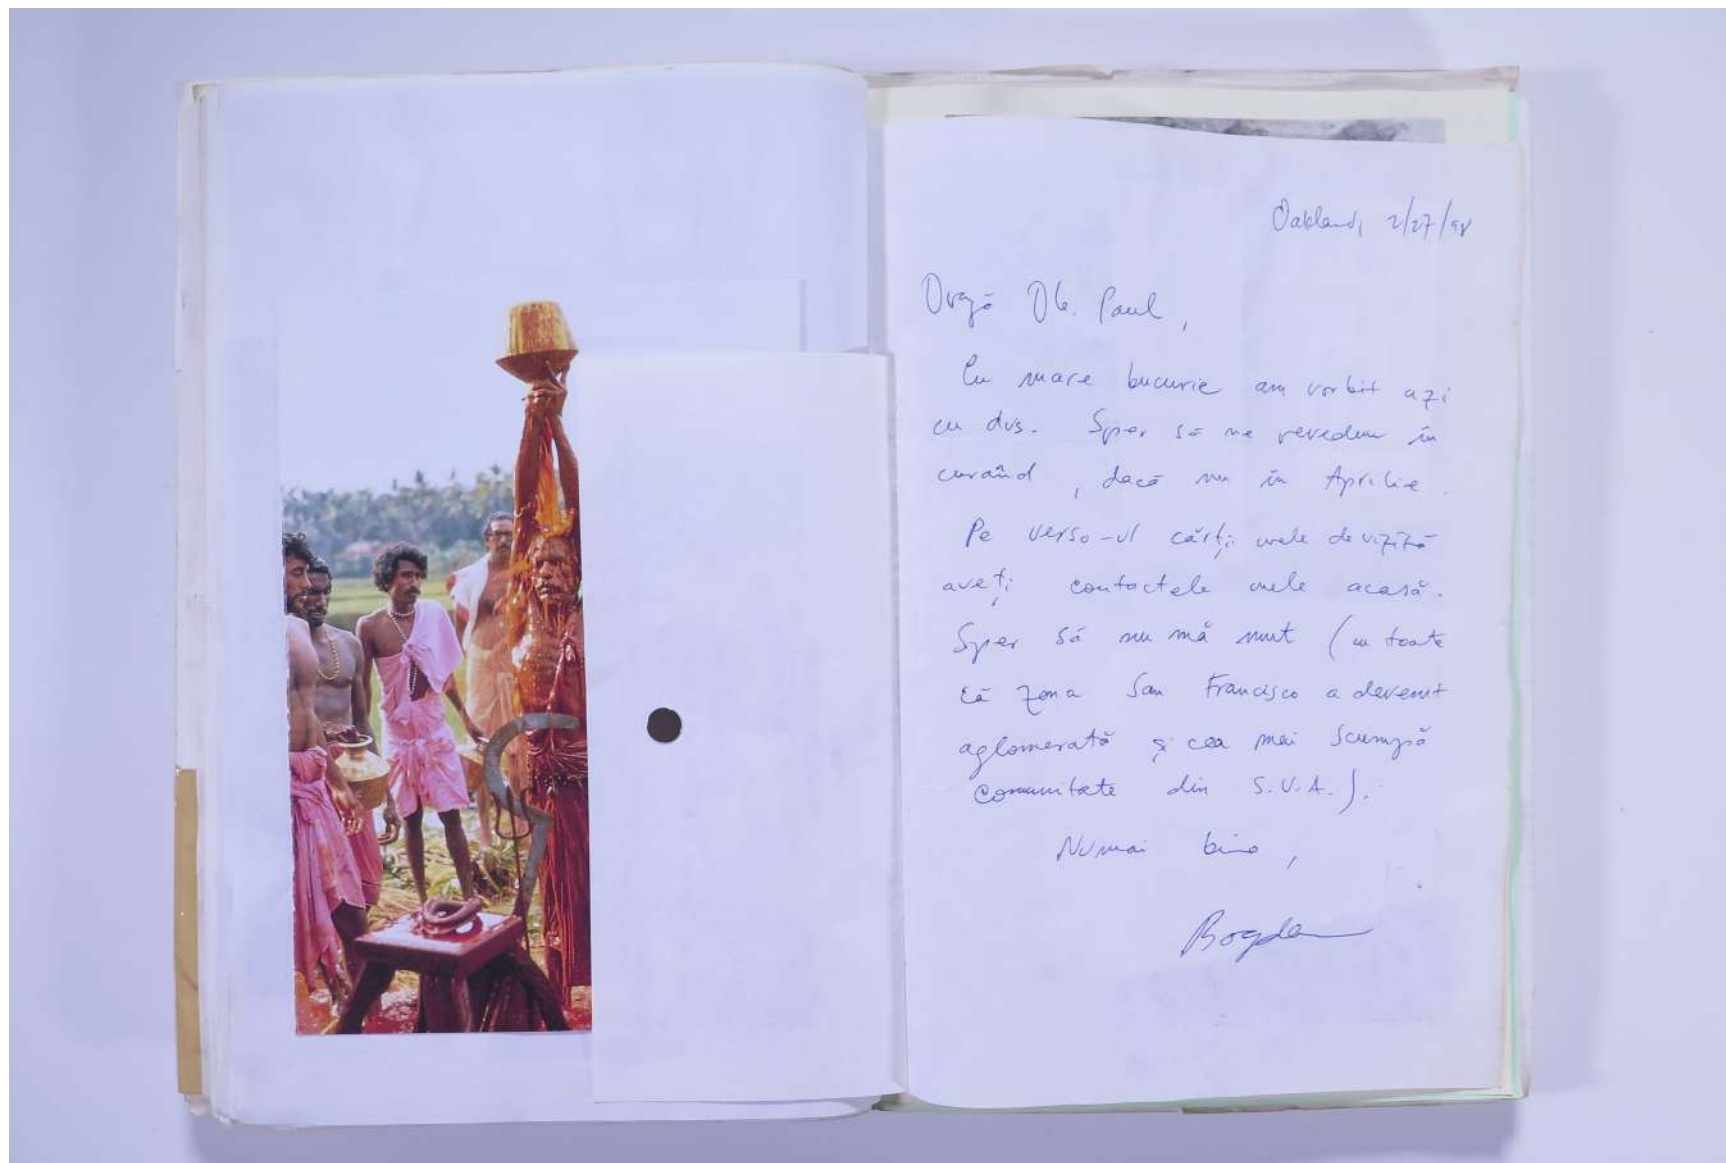 Oakland, 2/27/98
Dragă Dle. Paul,
Cu mare bucurie am vorbit azi
cu dvs. Sper să ne revedem în
curând, dacă nu în Aprilie.
Pe verso-ul cărții mele de vizită
aveți contactele mele acasă.
Sper să nu mă mut (cu toate
că zona San Francisco a devenit
aglomerată și cea mai scumpă
comunitate din S.U.A.).
Numai bine,
Bogdan